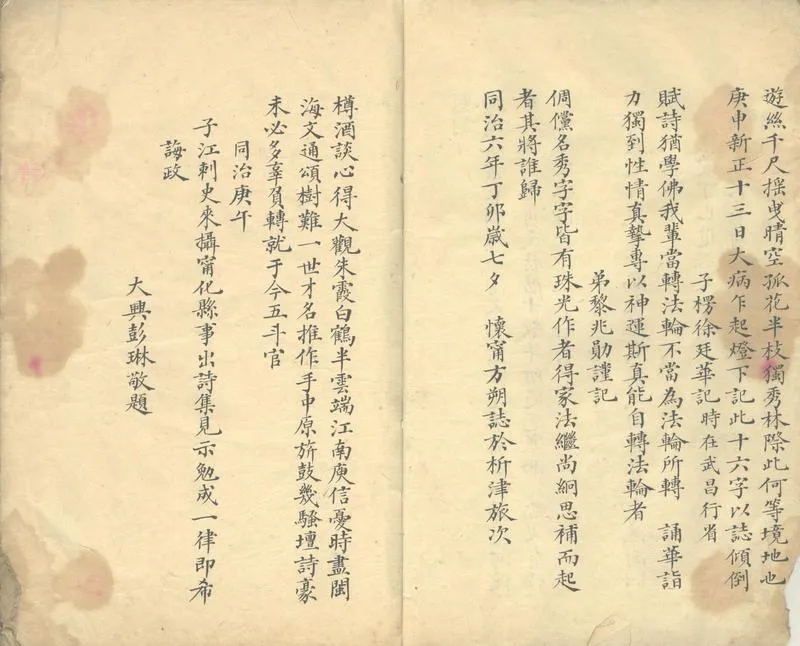 遊絲千尺搖曳晴空孤花半枝獨秀林際此何等境地也
庚申新正十三日大病乍起燈下記此十六字以誌傾倒
子楞徐廷華記時在武昌行省
賦詩猶學佛我輩當轉法輪不當為法輪所轉 誦華詣
力獨到性情真摯專以神運斯真能自轉法輪者
弟黎兆勛謹記
倜儻名秀字字皆有珠光作者得家法繼尚絅思補而起
者其將誰歸
同治六年丁卯歲七夕 懷甯方朔誌於析津旅次
樽酒談心得大觀朱霞白鶴半雲端江南庾信憂時盡閩
海文通頌樹難一世才名推作手中原旂鼓幾騷壇詩豪
未必多辜負轉就于今五斗官
同治庚午
子江刺史來攝甯化縣事出詩集見示勉成一律即希
誨政
大興彭琳敬題